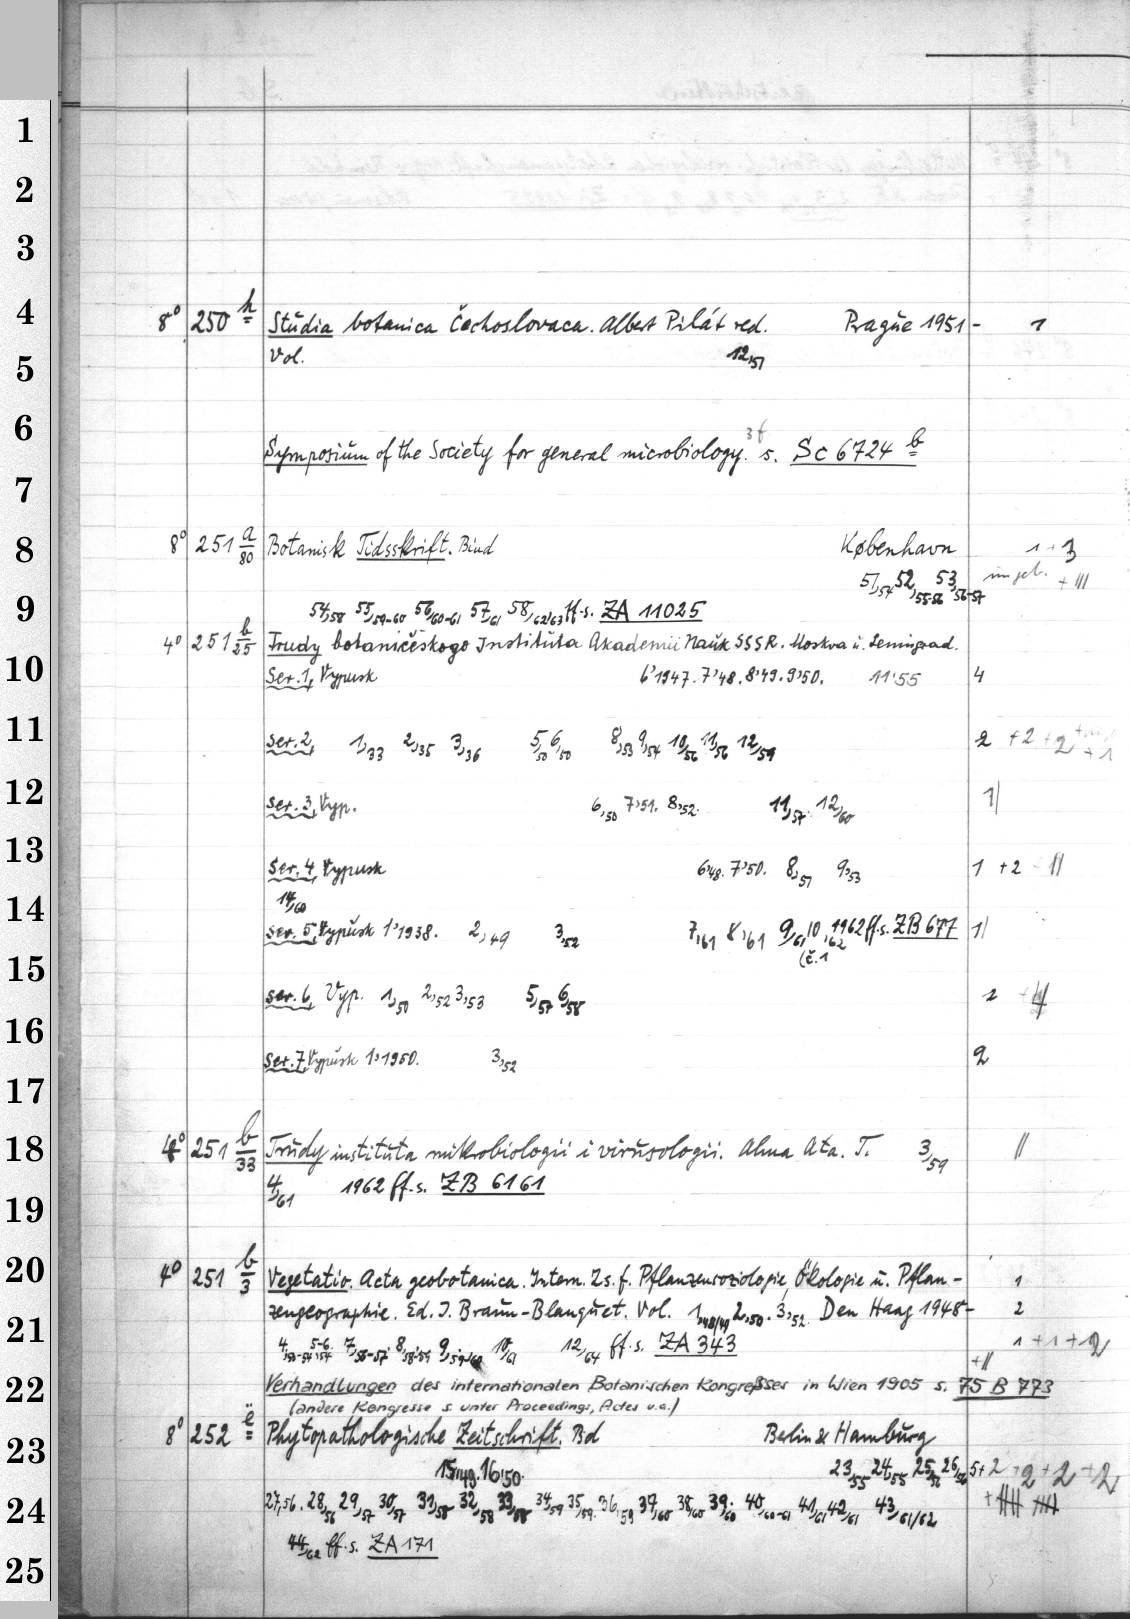 1
2
3
4
8° 250 h Studia botanica Čechoslovaca. Albert Pilát red. Prague 1951- 1
5
Vol. 12,51
6
Symposium of the Society for general microbiology. 3f s. Sc 6724 b
7
8
8° 251 a/80 Botanisk Tidsskrift. Bind København 1 + 3
51,54 52,55-56 53,56-57 ungeb. + III
9
54,58 55,59-60 56,60-61 57,61 58,62/63 ff. s. ZA 11025
4° 251 b/25 Trudy botaničeskogo Instituta Akademii Nauk SSSR. Moskva u. Leningrad.
10
Ser. 1, Vypusk 6'1947. 7'48. 8'49. 9'50. 11'55 4
11
ser. 2, 1,33 2,35 3,36 5,50 6,50 8,53 9,54 10,56 11,56 12,59 2 + 2 + 2 + 1
12
ser. 3, Vyp. 6,50 7,51. 8,52. 11,57. 12,60 1|
13
Ser. 4, Vypusk 6,48. 7,50. 8,51 9,53 1 + 2 II
14
14,60
ser. 5, Vypusk 1,1938. 2,49 3,52 7,61 8,61 9,61 10,62 1962 ff. s. ZB 677 1|
(č. 1
15
ser. 6, Vyp. 1,50 2,52 3,53 5,57 6,58 2
16
ser. 7, Vypusk 1,1950. 3,52 2
17
18
4° 251 b/33 Trudy instituta mikrobiologii i virusologii. Alma Ata. T. 3,59 II
4,61 1962 ff. s. ZB 6161
19
20
4° 251 b/3 Vegetatio. Acta geobotanica. Intern. Zs. f. Pflanzensoziologie, Ökologie u. Pflan- 1
zengeographie. Ed. J. Braun-Blanquet. Vol. 1,48/49 2,50. 3,52. Den Haag 1948- 2
21
4,53-54 5-6,54 7,56-57 8,58-59 9,59-60 10,61 12,64 ff. s. ZA 343 1 + 1 + 2
+ II
22
Verhandlungen des internationalen Botanischen Kongresses in Wien 1905 s. 75 B 773
(andere Kongresse s. unter Proceedings, Actes u.a.)
8° 252 ë Phytopathologische Zeitschrift. Bd Berlin & Hamburg
23
15,49. 16,50. 23,55 24,55 25,56 26,56 5 + 2 + 2 + 2 + 2
24
27,56. 28,56 29,57 30,57 31,58 32,58 33,58 34,59 35,59. 36,59 37,60 38,60 39,60 40,60-61 41,61 42,61 43,61/62
44,62 ff. s. ZA 171
25